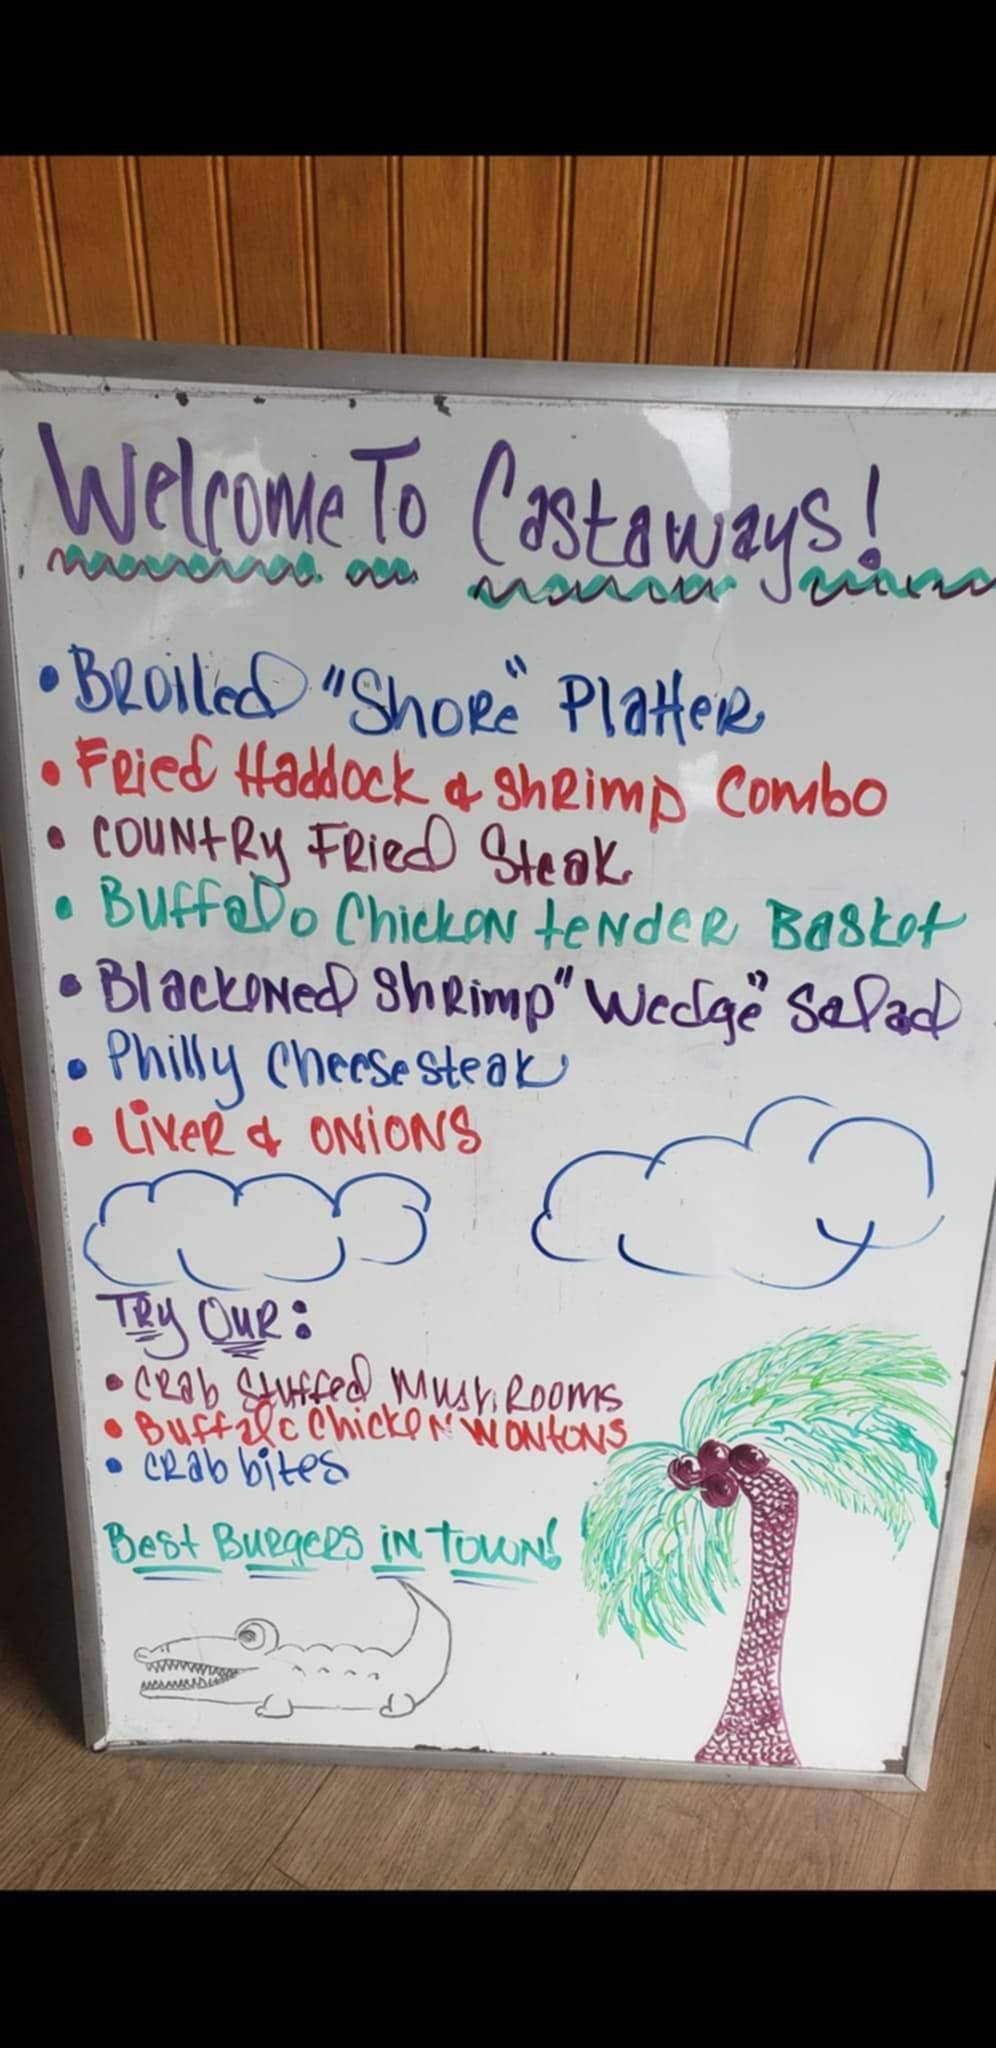 Welcome To Castaways!
• Broiled "Shore" Platter
• Fried Haddock & Shrimp Combo
• Country Fried Steak
• Buffalo Chicken tender Basket
• Blackened Shrimp "Wedge" Salad
• Philly Cheesesteak
• Liver & Onions
Try Our:
• Crab Stuffed Mushrooms
• Buffalo Chicken Wontons
• Crab bites
Best Burgers in Town!